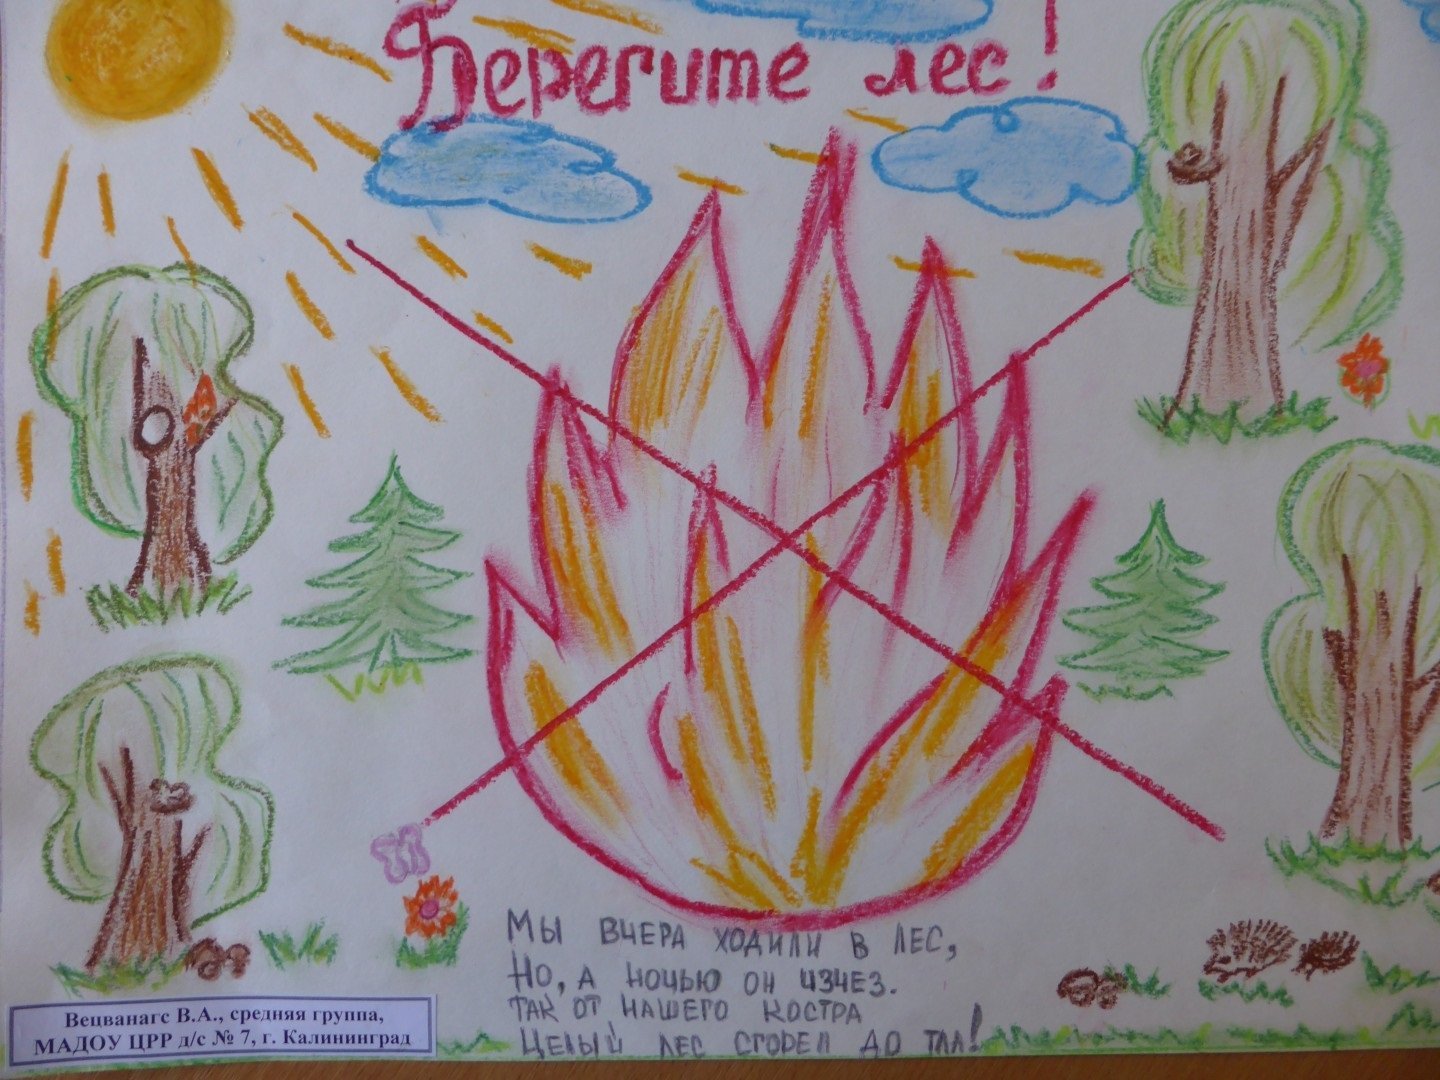 Берегите лес!
Мы вчера ходили в лес,
Но, а ночью он изчез.
Так от нашего костра
Целый лес сгорел до тла!
Вецванагс В.А., средняя группа,
МАДОУ ЦРР д/с № 7, г. Калининград